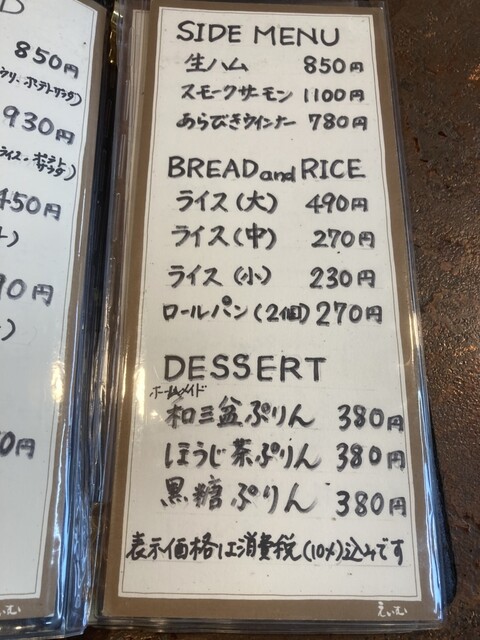 D
850円
ウリ、ポテトサラダ)
930円
ライス・ポテトサラダ)
450円
ト)
90円
ト)
0円
SIDE MENU
生ハム 850円
スモークサーモン 1100円
あらびきウインナー 780円
BREAD and RICE
ライス(大) 490円
ライス(中) 270円
ライス(小) 230円
ロールパン(2個) 270円
DESSERT
ホームメイド
和三盆ぷりん 380円
ほうじ茶ぷりん 380円
黒糖ぷりん 380円
表示価格は消費税(10%)込みです
えいむ